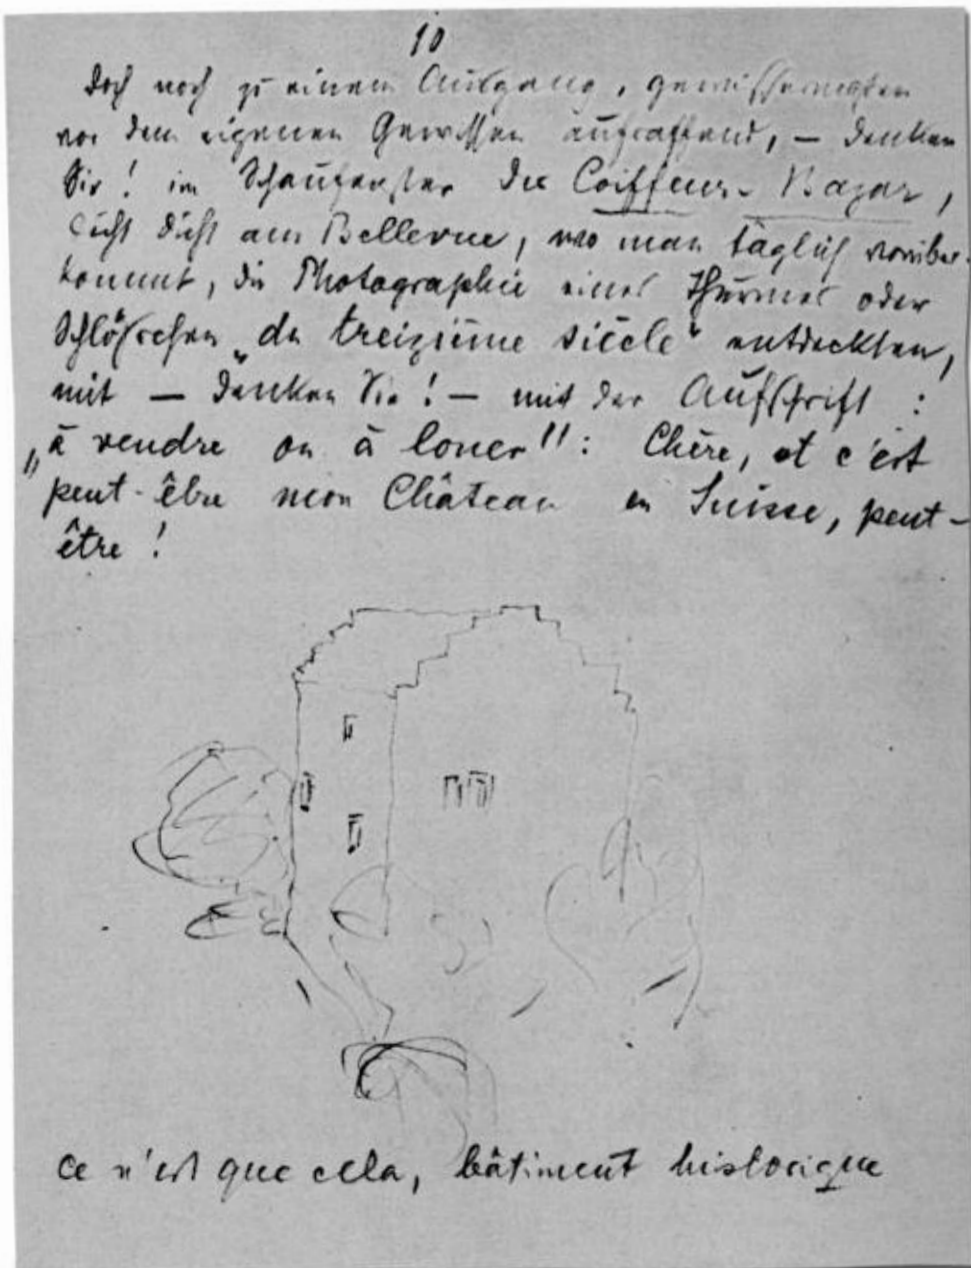 10
doch noch zu einem Ausgang, gewissermaßen
vor dem eigenen Gewissen aufraffend, — denken
Sie! im Schaufenster des Coiffeur-Bazar,
dicht am Bellevue, wo man täglich vorüber-
kommt, die Photographie eines Thurmes oder
Schlößchen „du treizième siècle“ entdeckten,
mit — denken Sie! — mit der Aufschrift :
„à vendre ou à louer“: Chère, et c'est
peut-être mon Château en Suisse, peut-
être !
ce n'est que cela, bâtiment historique